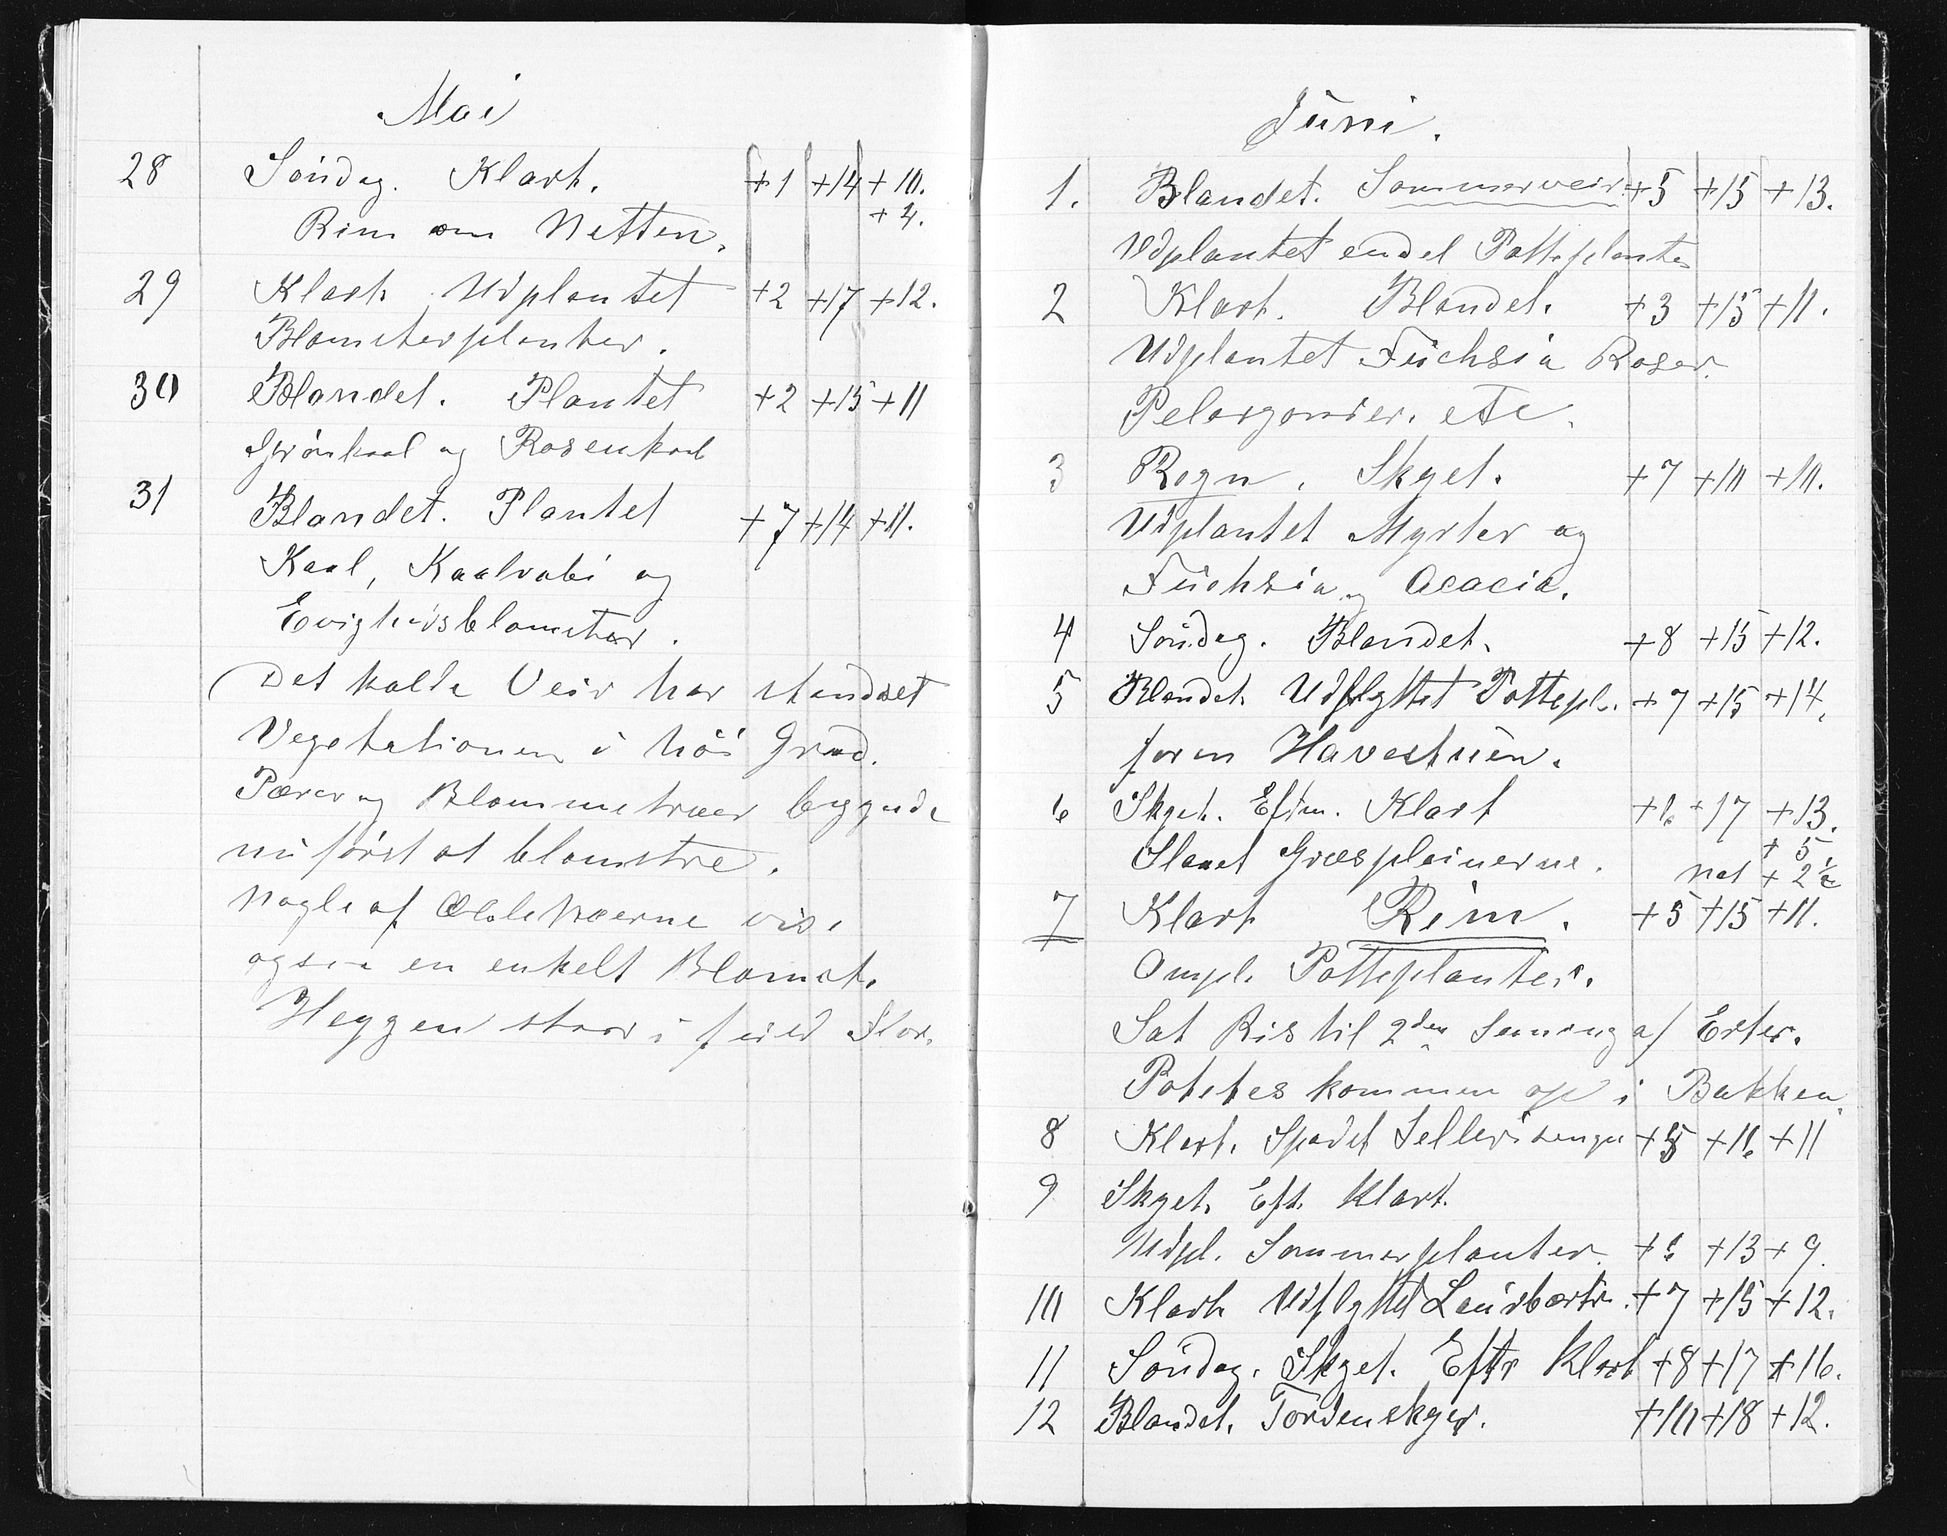 Mai
28 Søndag. Klart. +1 +14 +10.
Rim om Natten. +4.
29 Klart. Udplantet +2 +17 +12.
Blomsterplanter.
30 Blandet. Plantet +2 +15 +11
Grønkaal og Rosenkaal
31 Blandet. Plantet +7 +14 +11.
Kaal, Kaalrabi og
Evighedsblomster.
Det kalde Veir har standset
Vegetationen i høi Grad.
Pærer og Blommetræer begynde
nu først at blomstre.
Nogle af Æbletræerne vise
ogsaa en enkelt Blomst.
Heggen staar i fuld Flor.
Juni.
1. Blandet. Sommerveir +5 +15 +13.
Udplantet endel Potteplanter
2 Klart. Blandet. +3 +15 +11.
Udplantet Fuchsia Roser.
Pelargonier. etc.
3 Regn. Skyet. +7 +10 +10.
Udplantet Myrter og
Fuchsia og Acacia.
4 Søndag. Blandet. +8 +15 +12.
5 Blandet. Udflyttet Pottepl. +7 +15 +14.
form Havestuen.
6 Skyet. Eftm. Klart +6 +17 +13.
+5
Slaaet Græsplainerne. Nat +2½
7 Klart Rim. +5 +15 +11.
Ompl. Potteplanter.
Sat Ris til 2den Saaning af Erter.
Potetes kommen op i Bakken.
8 Klart. Spadet Sellerisenge +5 +16 +11
9 Skyet. Eft. Klart.
Udpl. Sommerplanter. +6 +13 +9.
10 Klart. Udflyttet Laurbærtr. +7 +15 +12.
11 Søndag. Skyet. Eftr Klart +8 +17 +16.
12 Blandet. Tordenskyer. +10 +18 +12.